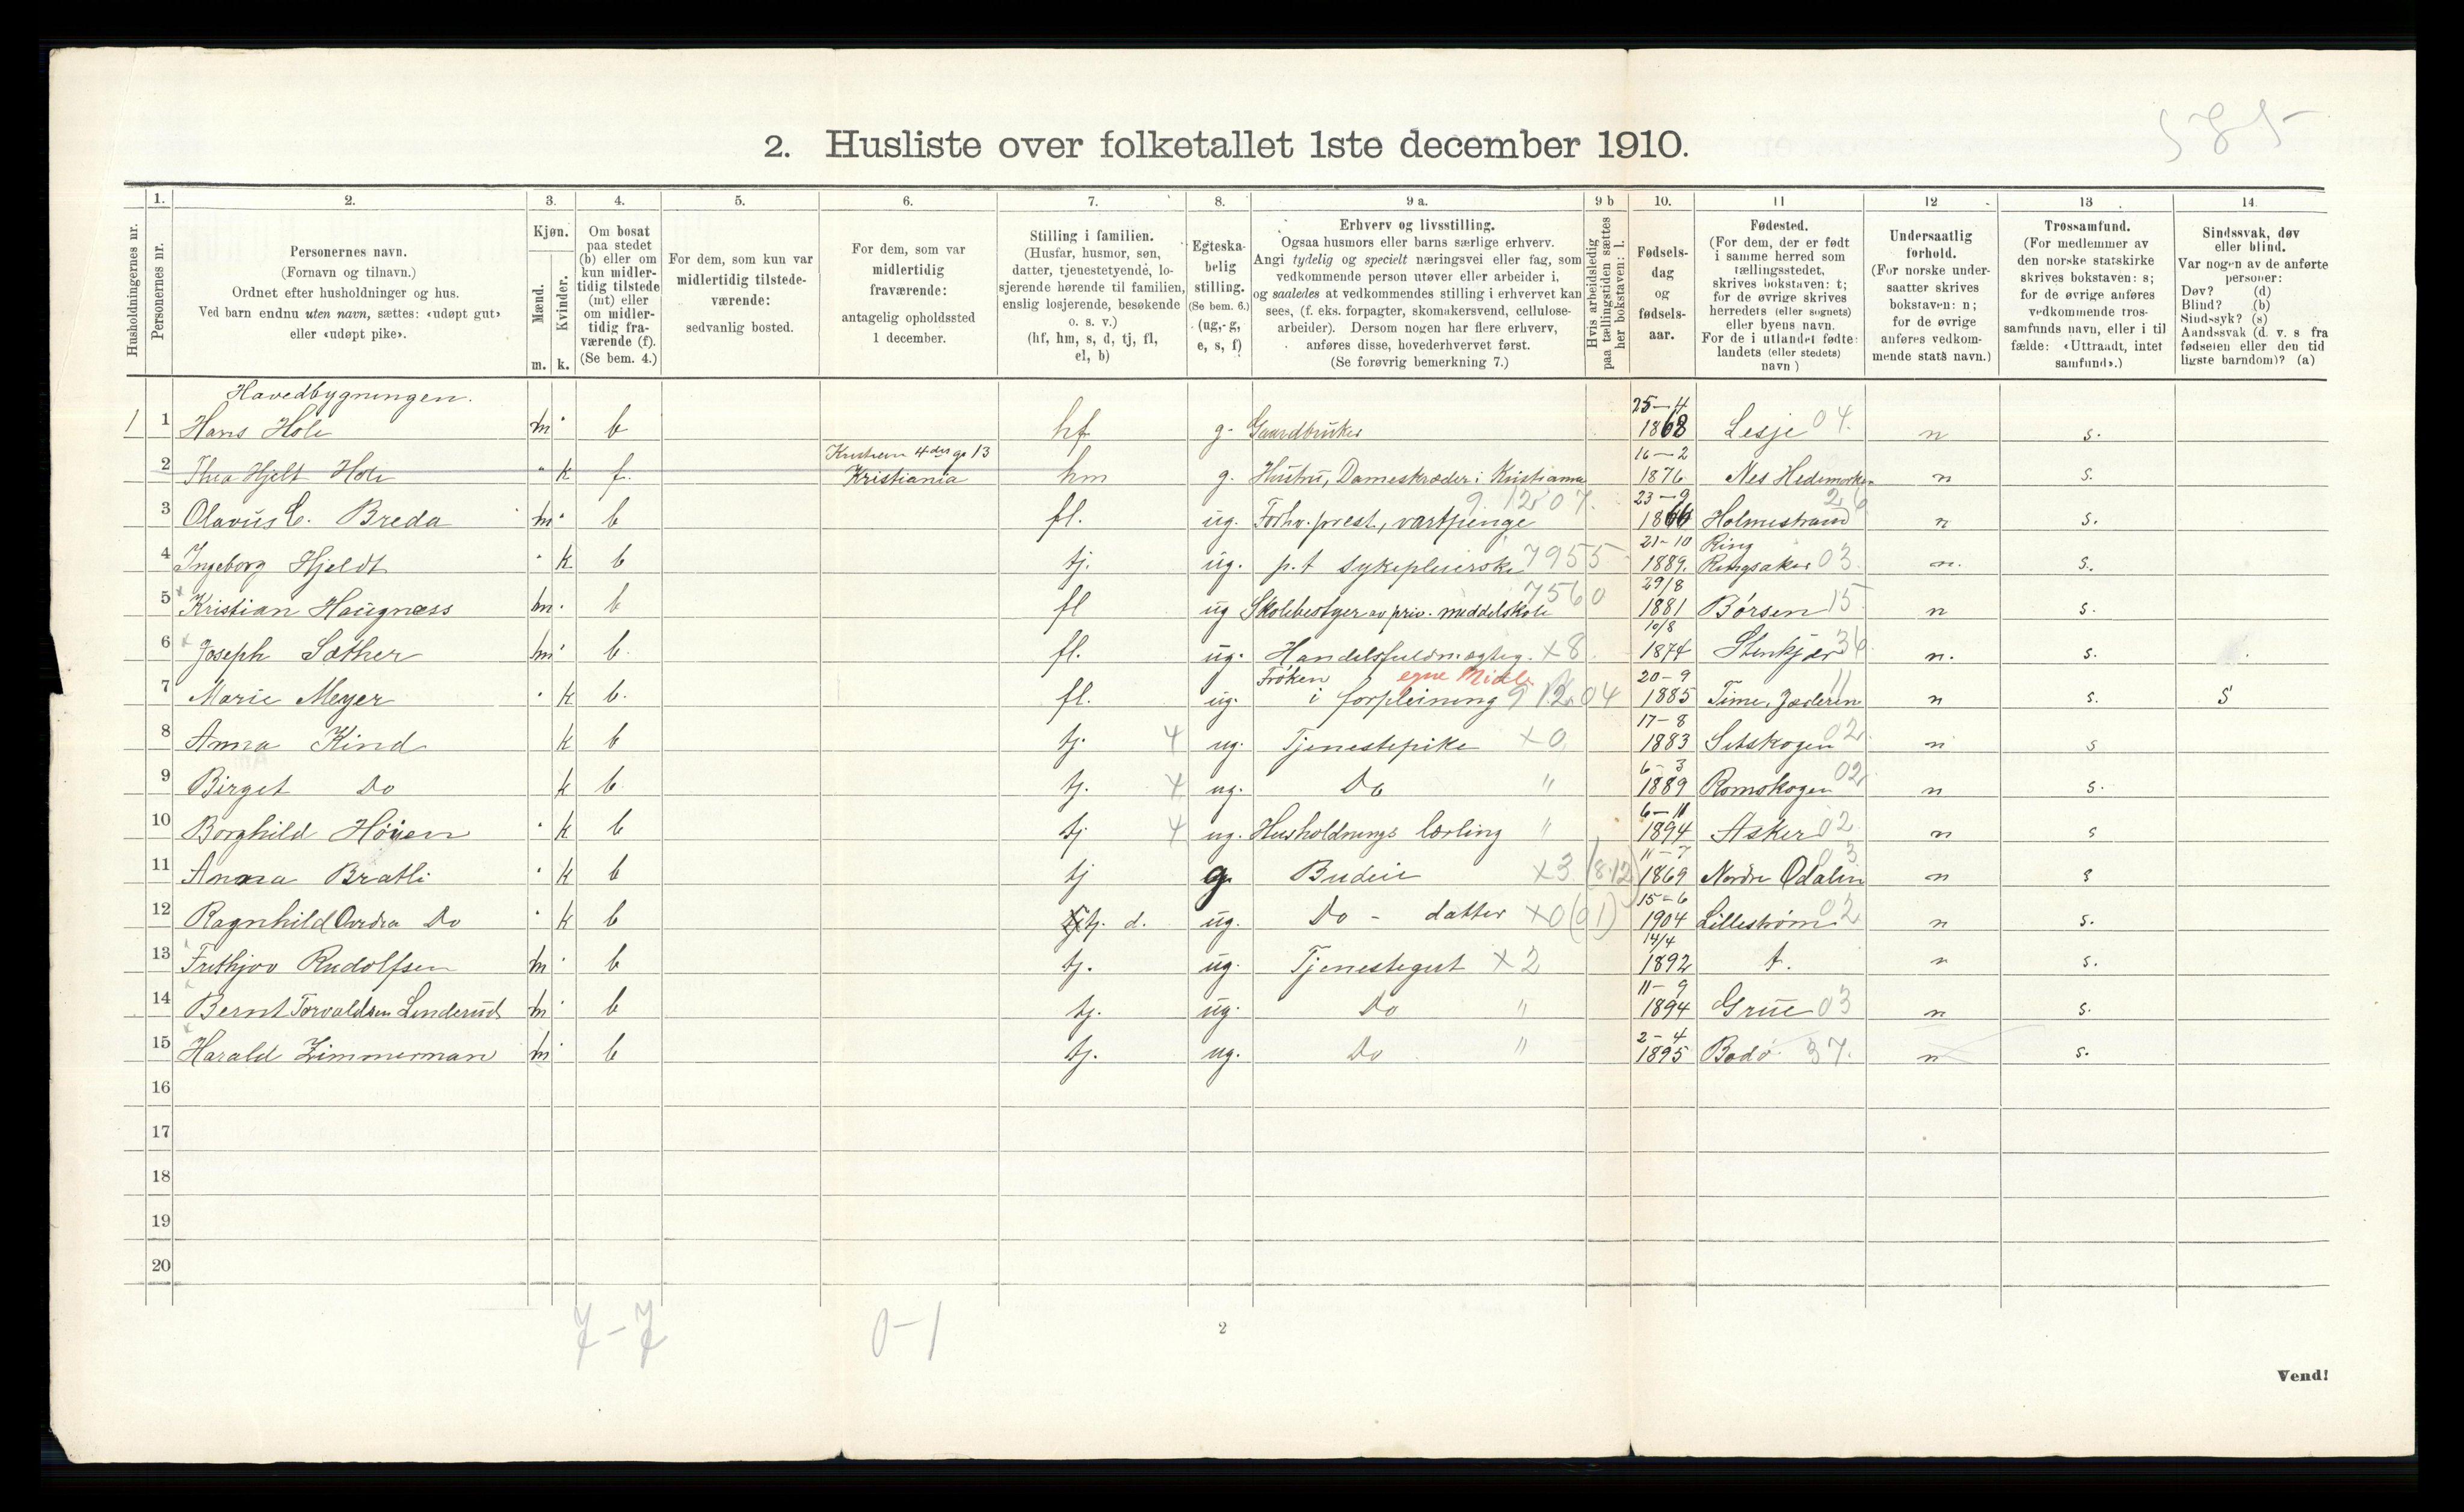 585
2. Husliste over folketallet 1ste december 1910.
Husholdningernes nr.
1.
Personernes nr.
2.
Personernes navn.
(Fornavn og tilnavn.)
Ordnet efter husholdninger og hus.
Ved barn endnu uten navn, sættes: «udøpt gut»
eller «udøpt pike».
3.
Kjøn.
Mænd.
Kvinder.
m. k.
4.
Om bosat
paa stedet
(b) eller om
kun midler-
tidig tilstede
(mt) eller
om midler-
tidig fra-
værende (f).
(Se bem. 4.)
5.
For dem, som kun var
midlertidig tilstede-
værende:
sedvanlig bosted.
6.
For dem, som var
midlertidig
fraværende:
antagelig opholdssted
1 december.
7.
Stilling i familien.
(Husfar, husmor, søn,
datter, tjenestetyende, lo-
sjerende hørende til familien,
enslig losjerende, besøkende
o. s. v.)
(hf, hm, s, d, tj, fl,
el, b)
8.
Egteska-
belig
stilling.
(Se bem. 6.)
(ug, g,
e, s, f)
9 a.
Erhverv og livsstilling.
Ogsaa husmors eller barns særlige erhverv.
Angi tydelig og specielt næringsvei eller fag, som
vedkommende person utøver eller arbeider i,
og saaledes at vedkommendes stilling i erhvervet kan
sees, (f. eks. forpagter, skomakersvend, cellulose-
arbeider). Dersom nogen har flere erhverv,
anføres disse, hovederhvervet først.
(Se forøvrig bemerkning 7.)
9 b
Hvis arbeidsledig
paa tællingstiden sættes
her bokstaven: l.
10.
Fødsels-
dag
og
fødsels-
aar.
11
Fødested.
(For dem, der er født
i samme herred som
tællingsstedet,
skrives bokstaven: t;
for de øvrige skrives
herredets (eller sognets)
eller byens navn.
For de i utlandet fødte:
landets (eller stedets)
navn )
12
Undersaatlig
forhold.
(For norske under-
saatter skrives
bokstaven: n;
for de øvrige
anføres vedkom-
mende stats navn.)
13
Trossamfund.
(For medlemmer av
den norske statskirke
skrives bokstaven: s;
for de øvrige anføres
vedkommende tros-
samfunds navn, eller i til
fælde: «Uttraadt, intet
samfund».)
14.
Sindssvak, døv
eller blind.
Var nogen av de anførte
personer:
Døv? (d)
Blind? (b)
Sindssyk? (s)
Aandssvak (d. v. s fra
fødselen eller den tid
ligste barndom)? (a)
Havedbygningen.
1 1 Hans Hole m b hf g. Gaardbruker 25-4 1868 Lesje 04. n s.
2 Thea Hjelt Hole k f. Kristian 4des g. 13 Kristiania hm g. Hustru, Dameskræder i Kristiania 16-2 1876 Nes Hedemarken n s.
3 Olavus C. Breda m b fl. ug. Forhv. prest, vartpenge 9.12 07. 23-9 1866 Holmestrand 26 n s.
4 Ingeborg Hjeldt k b tj. ug. p.t sykepleierske 7955 21-10 1889. Ring Ringsaker 03 n. s.
5 Kristian Haugness m. b fl ug Skolebestyrer av priv. middelskole 7560 29/8 1881 Børsen 15 n s.
6 Joseph Sæther m b. fl. ug. Handelsfuldmægtig. x8 10/8 1874 Stenkjær 36 n. s.
7 Marie Meyer k b. fl. ug. Frøken i forpleining egne Midle 9 12 04 20-9 1885 Time, Jæderen 11 n s. s
8 Anna Kind k b tj. 4 ug. Tjenestepike x0 17-8 1883 Setskogen 02 n s
9 Birget Do k b. tj. 4 ug. Do " 6-3 1889 Romskogen 02 n s.
10 Borghild Høyen k b tj 4 ug. Husholdnings lærling " 6-11 1894 Asker 02 n s
11 Anna Bratli k b tj g. Budeie x3 (8.12) 11-7 1869 Nordre Odalen 03 n s
12 Ragnhild Ovidia Do k b tj. d. ug. Do - datter x0 (01) 15-6 1904 Lillestrøm 02 n s.
13 Frithjov Rudolfsen m b tj. ug. Tjenestegut x2 14/4 1892 t. n s.
14 Bernt Torvaldsen Linderud m b tj. ug. Do " 11-9 1894 Grue 03 n s.
15 Harald Zimmerman m b tj. ug. Do " 2-4 1895 Bodø 37. n s.
16
17
18
19
20
7-7 0-1
2
Vend!